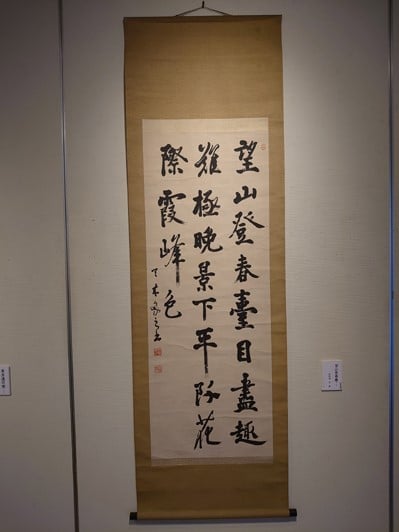 望山登春臺目盡趣
難極晚景下平阡花
際霞峰色